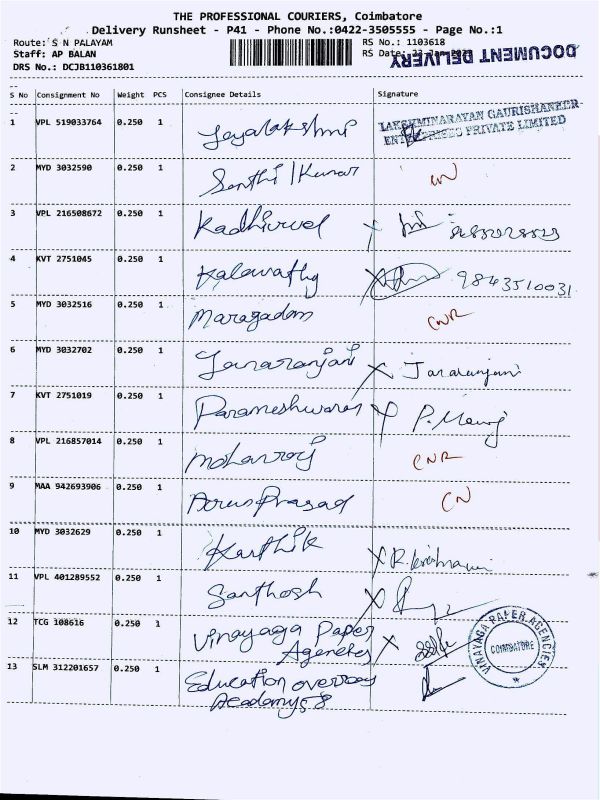 THE PROFESSIONAL COURIERS, Coimbatore
Delivery Runsheet - P41 - Phone No.:0422-3505555 - Page No.:1
Route: S N PALAYAM
RS No.: 1103618
Staff: AP BALAN
RS Date:
DOCUMENT DELIVERY
DRS No.: DCJB110361801
S No Consignment No Weight PCS Consignee Details Signature
1 VPL 519033764 0.250 1 Jeyalakshmi LAKSHMINARAYAN GAURISHANKER
ENTERPRISES PRIVATE LIMITED
2 MYD 3032590 0.250 1 Senthil Kumar
3 VPL 216508672 0.250 1 Kadhirvel X
4 KVT 2751045 0.250 1 Kalavathy X 9843510031
5 MYD 3032516 0.250 1 Maragadam CNR
6 MYD 3032702 0.250 1 Janaranjani X Jararanjani
7 KVT 2751019 0.250 1 Parameshwaran X P.
8 VPL 216857014 0.250 1 Mohanraj CNR
9 MAA 942693906 0.250 1 Arun Prasad CN
10 MYD 3032629 0.250 1 Karthik X R.
11 VPL 401289552 0.250 1 Santhosh X
12 TCG 108616 0.250 1 Vinayaga Paper X VINAYAGA PAPER AGENCIES
Agencies COIMBATORE
13 SLM 312201657 0.250 1 Education overseas
Academy